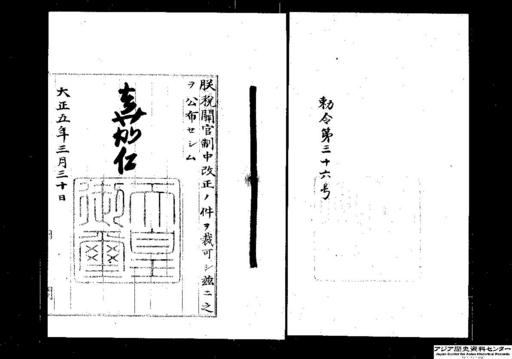 勅令第三十六号
朕税関官制中改正ノ件ヲ裁可シ玆ニ之
ヲ公布セシム
嘉仁
天皇御璽
大正五年三月三十日
アジア歴史資料センター
Japan Center for Asian Historical Records